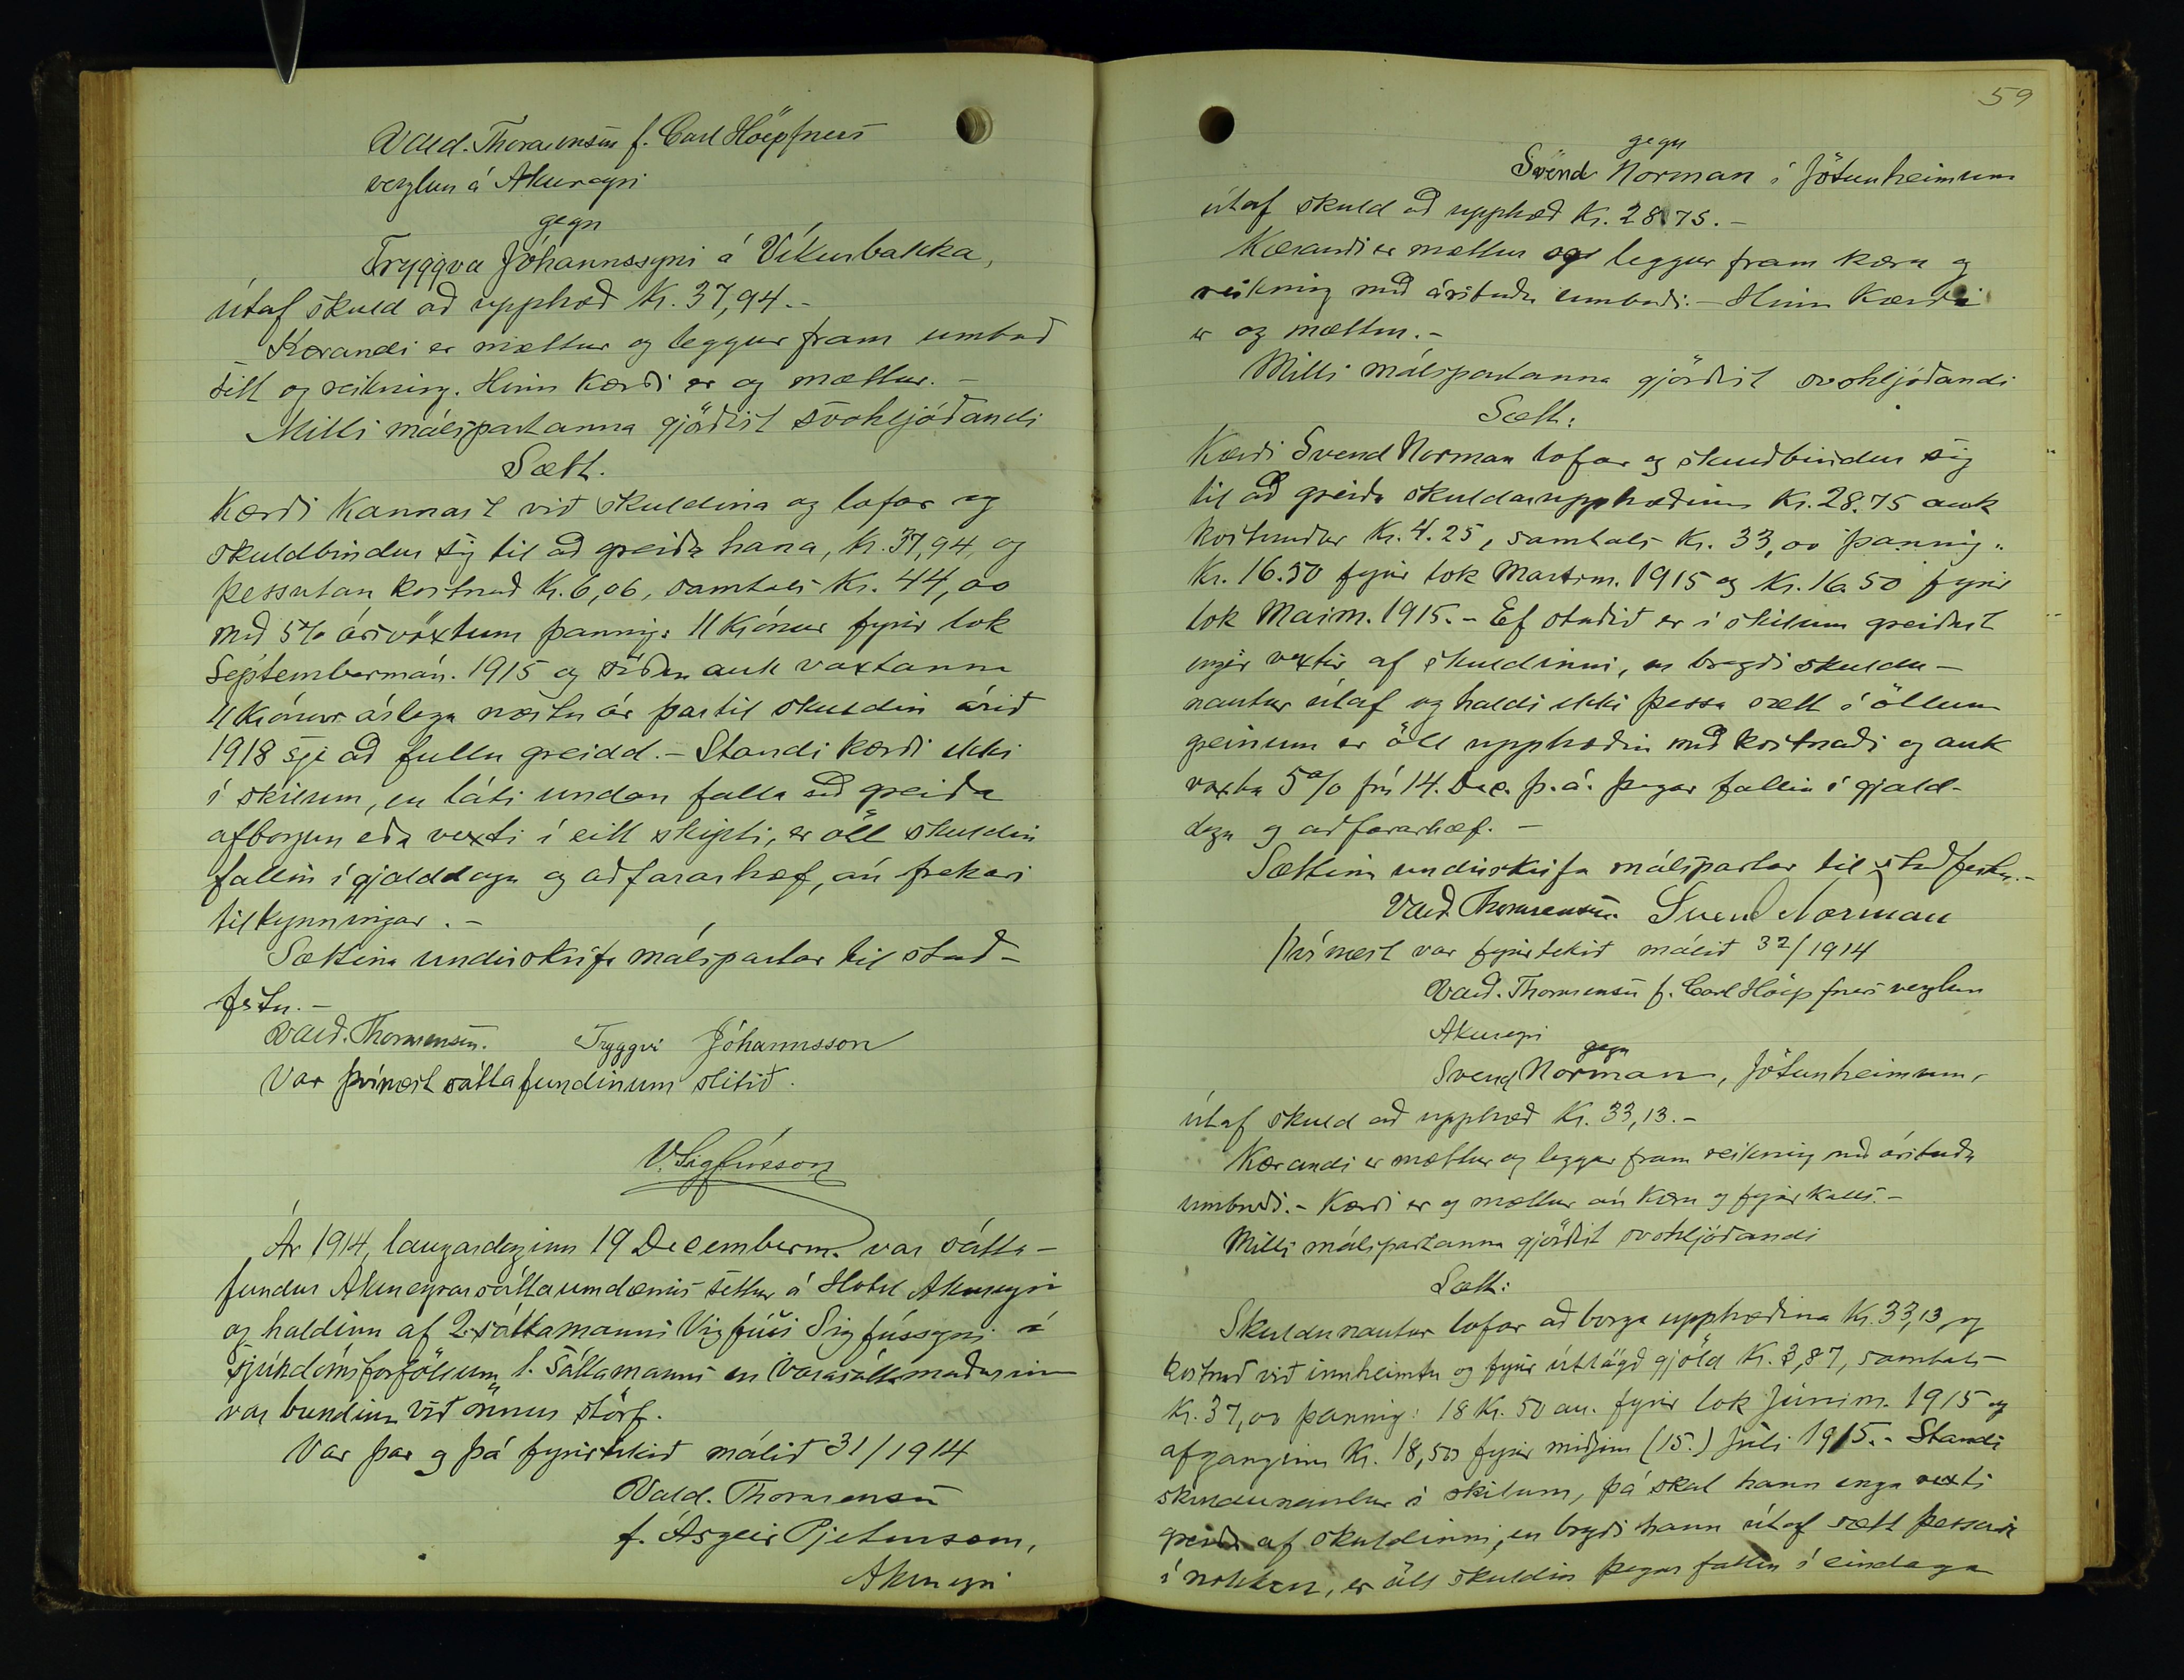 Vald. Thorarensen f. Carl Höepfners
verzlun á Akureyri
gegn
Tryggva Jóhannssyni á Víkurbakka,
útaf skuld að upphæð kr. 37,94.-
Kærandi er mættur og leggur fram umboð
sitt og reikning. Hinn kærði er og mættur. -
Milli málspartanna gjörðist svohljóðandi
Sætt.
Kærði kannast við skuldina og lofar og
skuldbindur sig til að greiða hana, kr. 37,94, og
þessutan kostnað kr. 6,06, samtals kr. 44,00
með 5% ársvöxtum þannig: 11 krónur fyrir lok
Septembermán. 1915 og síðan auk vaxtanna
11 krónur árlega næstu ár þartil skuldin árið
1918 sje að fullu greidd. - Standi kærði ekki
í skilum, en láti undan falla að greiða
afborgun eða vexti í eitt skipti, er öll skuldin
fallin í gjalddaga og aðfararhæf, án frekari
tilkynningar. -
Sættina undirskrifa málspartar til stað-
festu. -
Vald. Thorarensen. Tryggvi Jóhannsson
Var þvínæst sáttafundinum slitið.
V. Sigfússon
Ár 1914, laugardaginn 19 Decemberm. var sátta-
fundur Akureyrarsáttaumdæmis settur á Hotel Akureyri
og haldinn af 2. sáttamanni Vigfúsi Sigfússyni í
sjúkdómsforföllum 1. sáttamanns en varasáttamaðurinn
var bundinn við önnur störf.
Var þar og þá fyrirtekið málið 31/1914
Vald. Thorarensen
f. Ásgeir Pjetursson,
Akureyri
59
gegn
Svend Norman í Jötunheimum
útaf skuld að upphæð kr. 28.75. -
Kærandi er mættur og leggur fram kæru og
reikning með árituðu umboði. - Hinn kærði
er og mættur. -
Milli málspartanna gjörðist svohljóðandi
Sætt:
Kærði Svend Norman lofar og skuldbindur sig
til að greiða skuldarupphæðina kr. 28.75 auk
kostnaðar kr. 4.25, samtals kr. 33,00 þannig:
Kr. 16.50 fyrir lok Martsm. 1915 og kr. 16.50 fyrir
lok Maím. 1915. - Ef staðið er í skilum greiðast
engir vextir af skuldinni, en bregði skuldu-
nautur útaf og haldi ekki þessa sætt í öllum
greinum er öll upphæðin með kostnaði og auk
vaxta 5% frá 14. Dec. þ.á. þegar fallin í gjald-
daga og aðfararhæf. -
Sættina undirskrifa málspartar til staðfestu. -
Vald. Thorarensen. Svend Norman
Þvínæst var fyrirtekið málið 32/1914
Vald. Thorarensen f. Carl Höepfners verzlun
Akureyri
gegn
Svend Norman, Jötunheimum,
útaf skuld að upphæð kr. 33,13. -
Kærandi er mættur og leggur fram reikning með árituðu
umboði. - Kærði er og mættur án kæru og fyrirkalls. -
Milli málspartanna gjörðist svohljóðandi
Sætt:
Skuldunautur lofar að borga upphæðina kr. 33,13 og
kostnað við innheimtu og fyrir útlögð gjöld kr. 3,87, samtals
kr. 37,00 þannig: 18 kr. 50 au. fyrir lok Júním. 1915 og
afganginn kr. 18,50 fyrir miðjan (15.) Júli 1915. - Standi
skuldunautur í skilum, þá skal hann enga vexti
greiða af skuldinni, en bregði hann útaf sætt þessari
í nokkru, er öll skuldin þegar fallin í eindaga